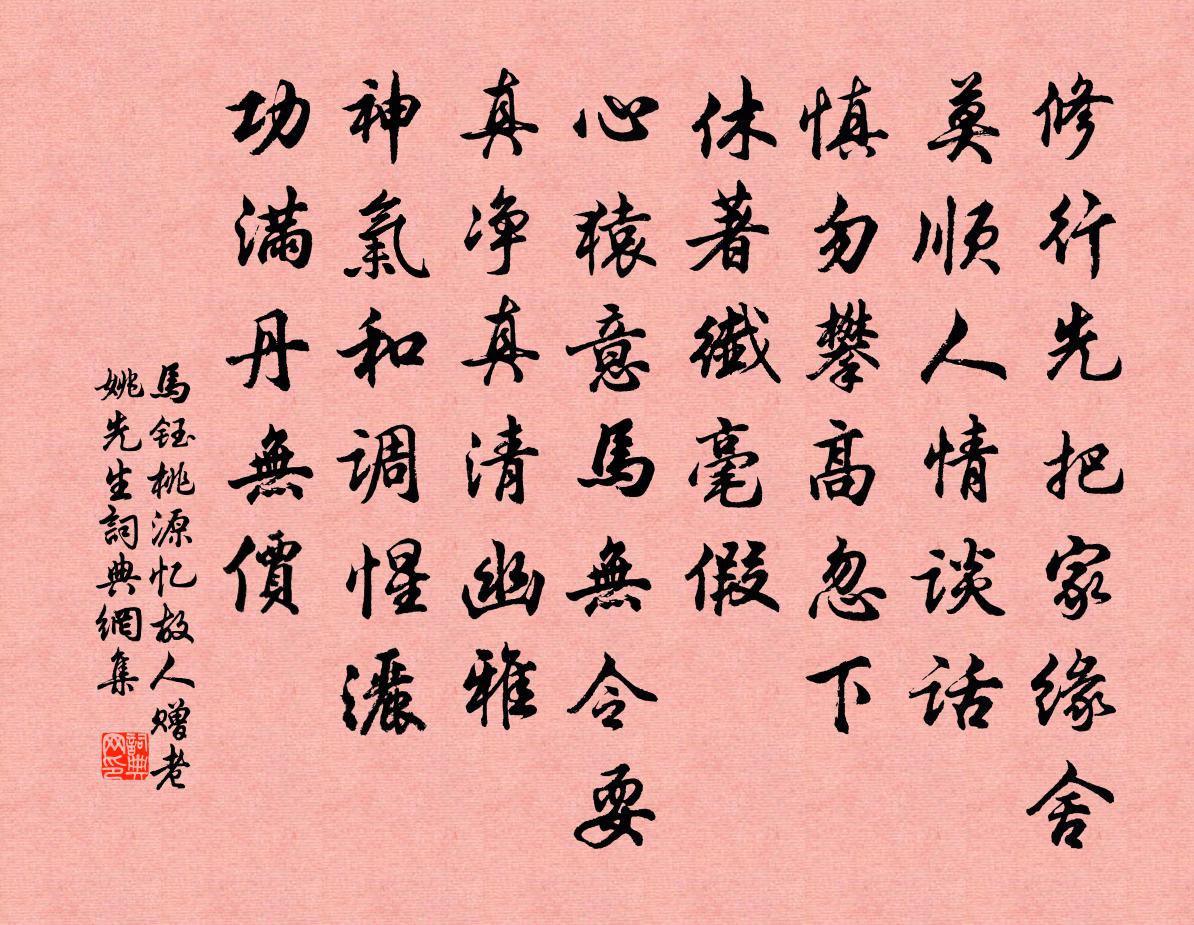 修行先把家缘舍
莫顺人情谈话
慎勿攀高忽下
休著纖毫假
心猿意馬無令耍
真净真清幽雅
神氣和调惺灑
功滿丹無價
馬鈺桃源忆故人赠老
姚先生詞典網集
詞典
网印